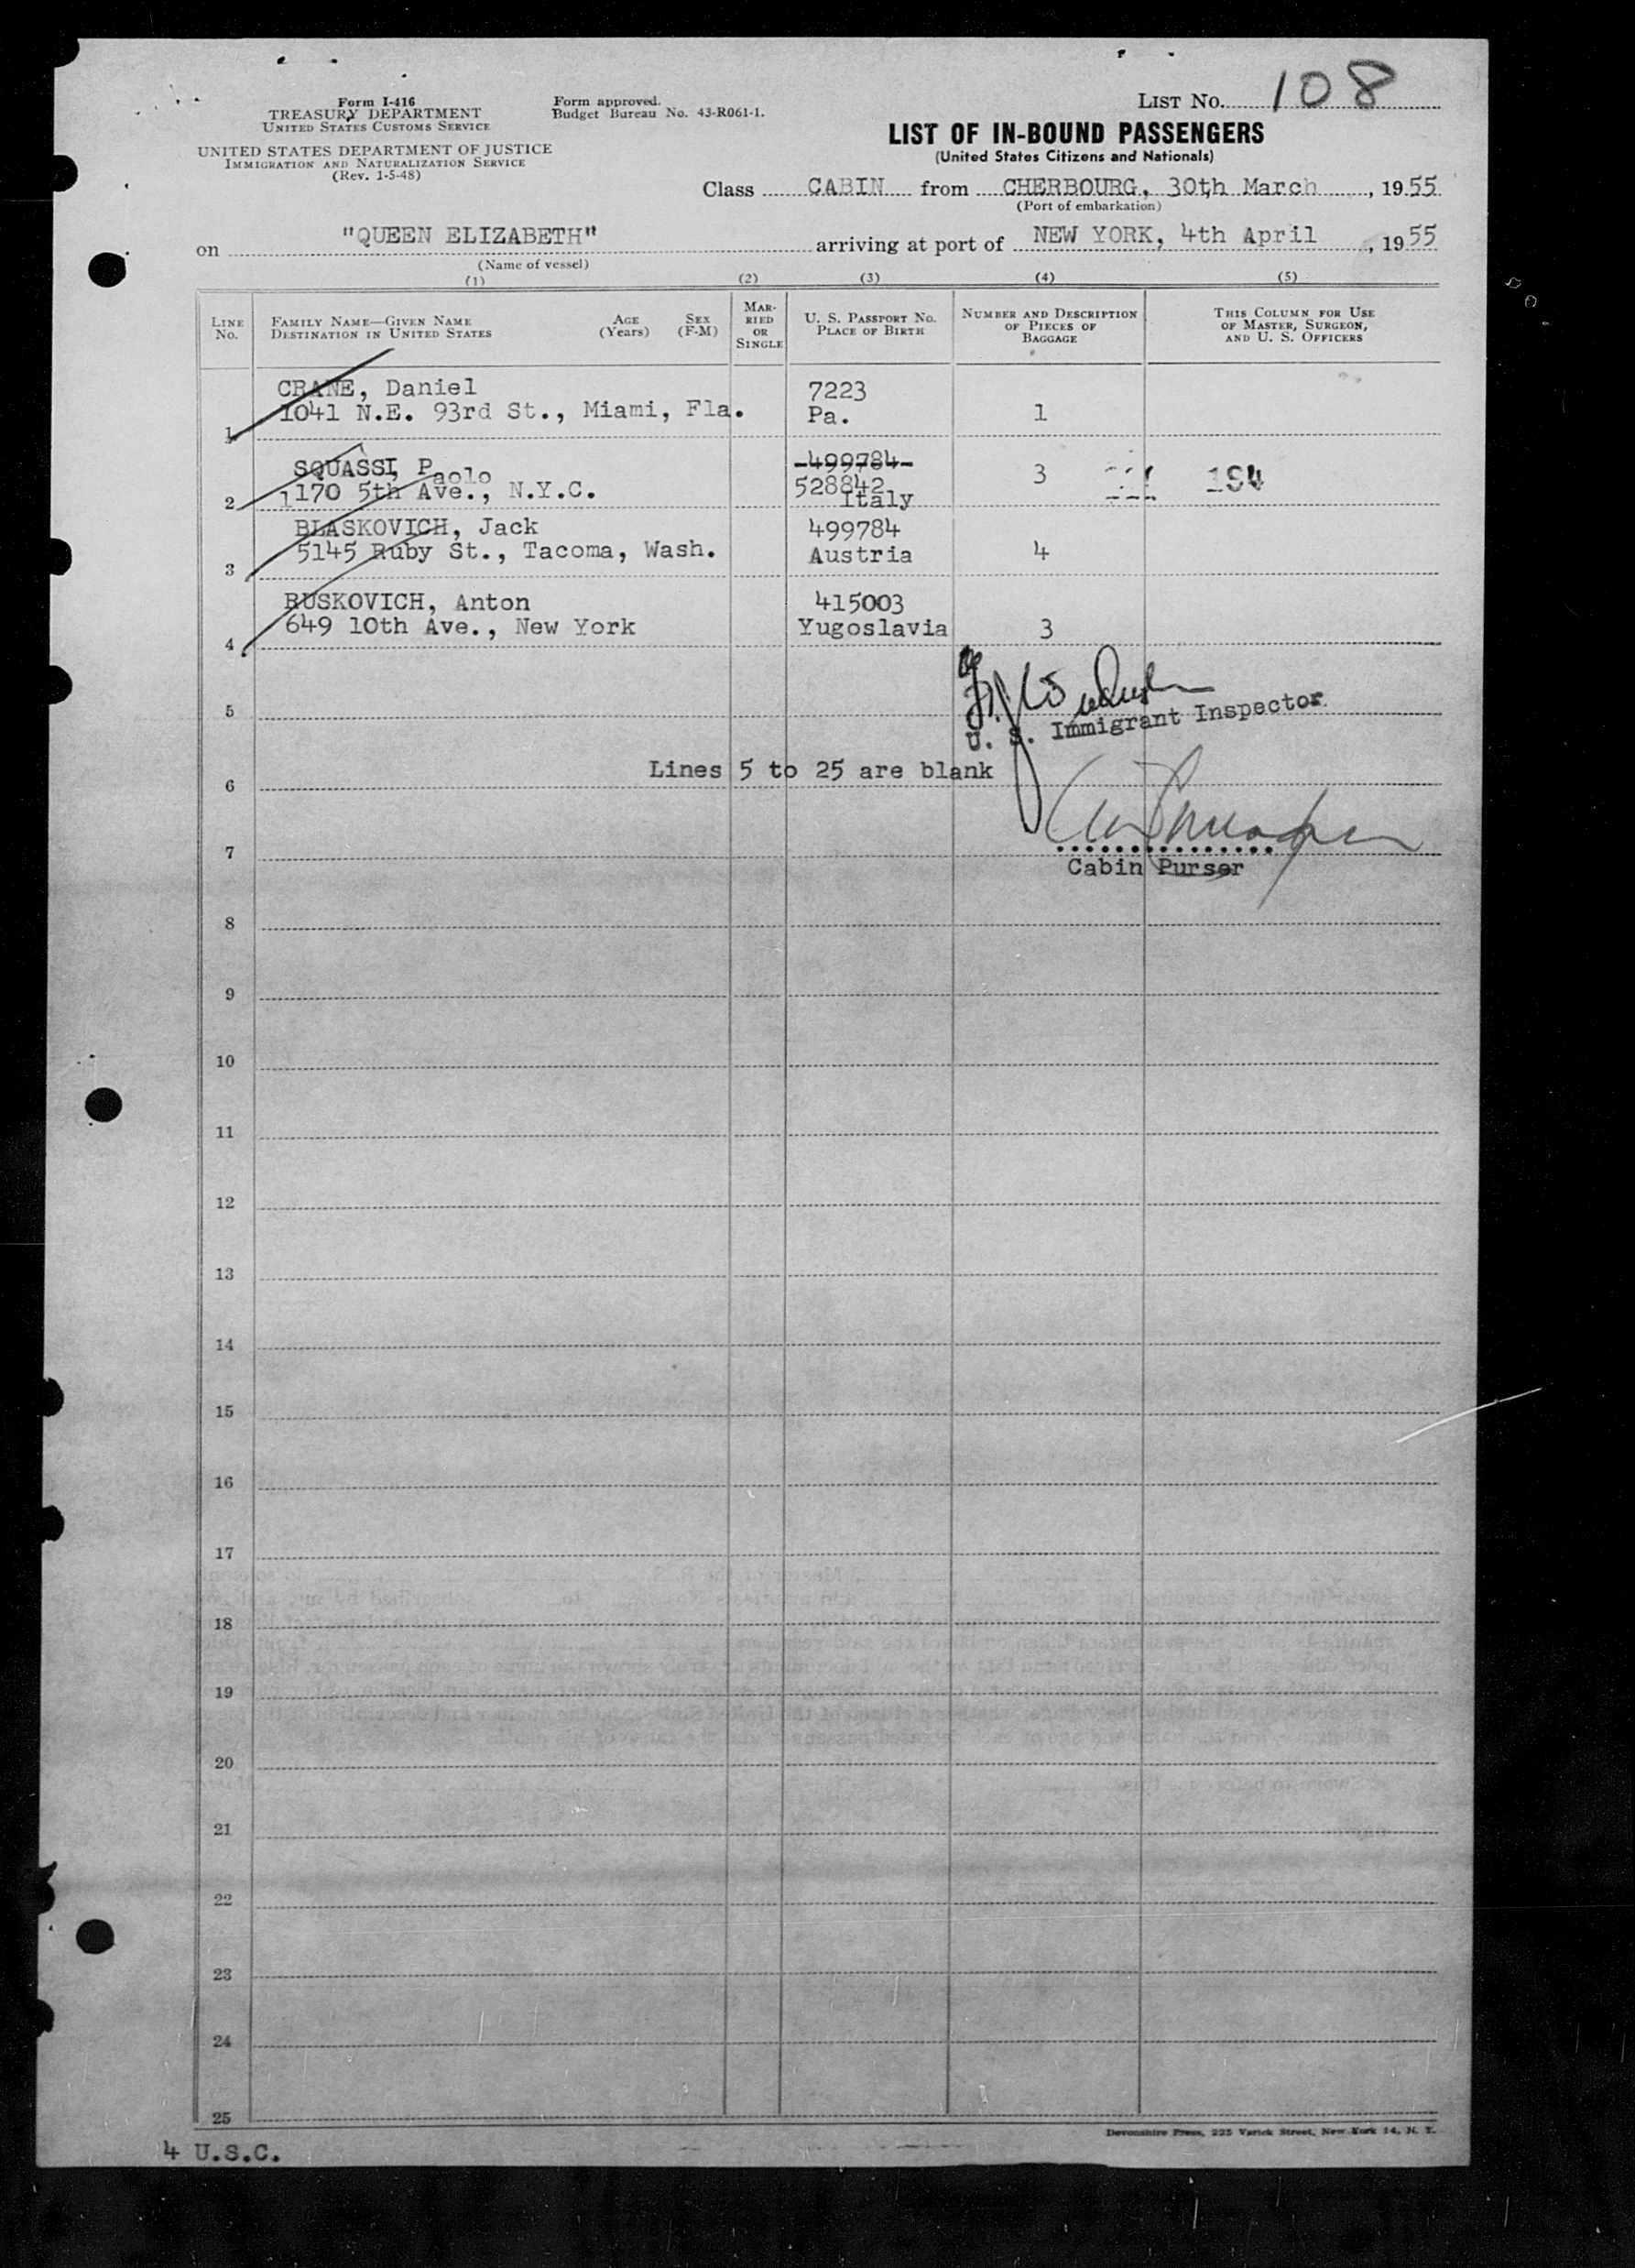 Form I-416
TREASURY DEPARTMENT
UNITED STATES CUSTOMS SERVICE
UNITED STATES DEPARTMENT OF JUSTICE
IMMIGRATION AND NATURALIZATION SERVICE
(Rev. 1-5-48)
Form approved.
Budget Bureau No. 43-R061-1.
LIST No. 108
LIST OF IN-BOUND PASSENGERS
(United States Citizens and Nationals)
Class CABIN from CHERBOURG, 30th March, 1955
(Port of embarkation)
on "QUEEN ELIZABETH" arriving at port of NEW YORK, 4th April, 1955
(Name of vessel)
(1) (2) (3) (4) (5)
LINE No.
FAMILY NAME—GIVEN NAME
DESTINATION IN UNITED STATES
AGE (Years)
SEX (F-M)
MARRIED OR SINGLE
U. S. PASSPORT NO.
PLACE OF BIRTH
NUMBER AND DESCRIPTION OF PIECES OF BAGGAGE
THIS COLUMN FOR USE OF MASTER, SURGEON, AND U. S. OFFICERS
CRANE, Daniel 7223
1041 N.E. 93rd St., Miami, Fla. Pa. 1
1
SQUASSI, Paolo 499784 3 194
1170 5th Ave., N.Y.C. 528842
2 Italy
BLASKOVICH, Jack 499784
5145 Ruby St., Tacoma, Wash. Austria 4
3
RUSKOVICH, Anton 415003
649 10th Ave., New York Yugoslavia 3
4
5
U. S. Immigrant Inspector
Lines 5 to 25 are blank
6
7
Cabin Purser
8
9
10
11
12
13
14
15
16
17
18
19
20
21
22
23
24
25
Devonshire Press, 225 Varick Street, New York 14, N. Y.
4 U.S.C.